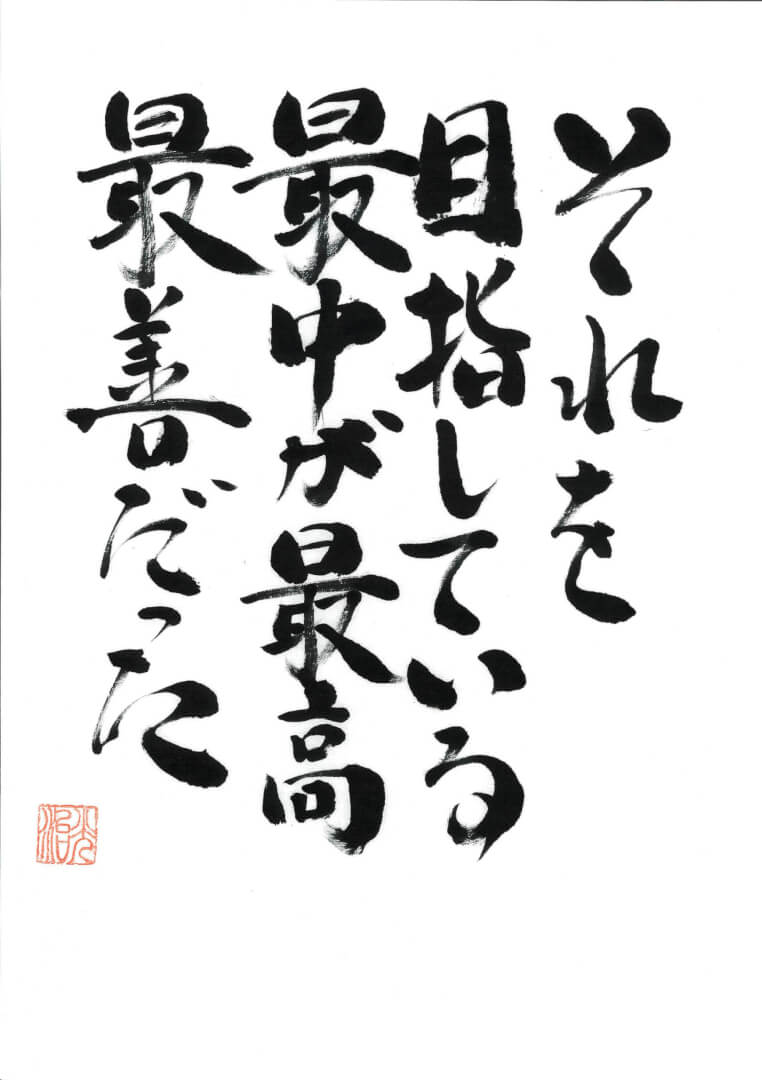 それを
目指している
最中が最高
最善だった